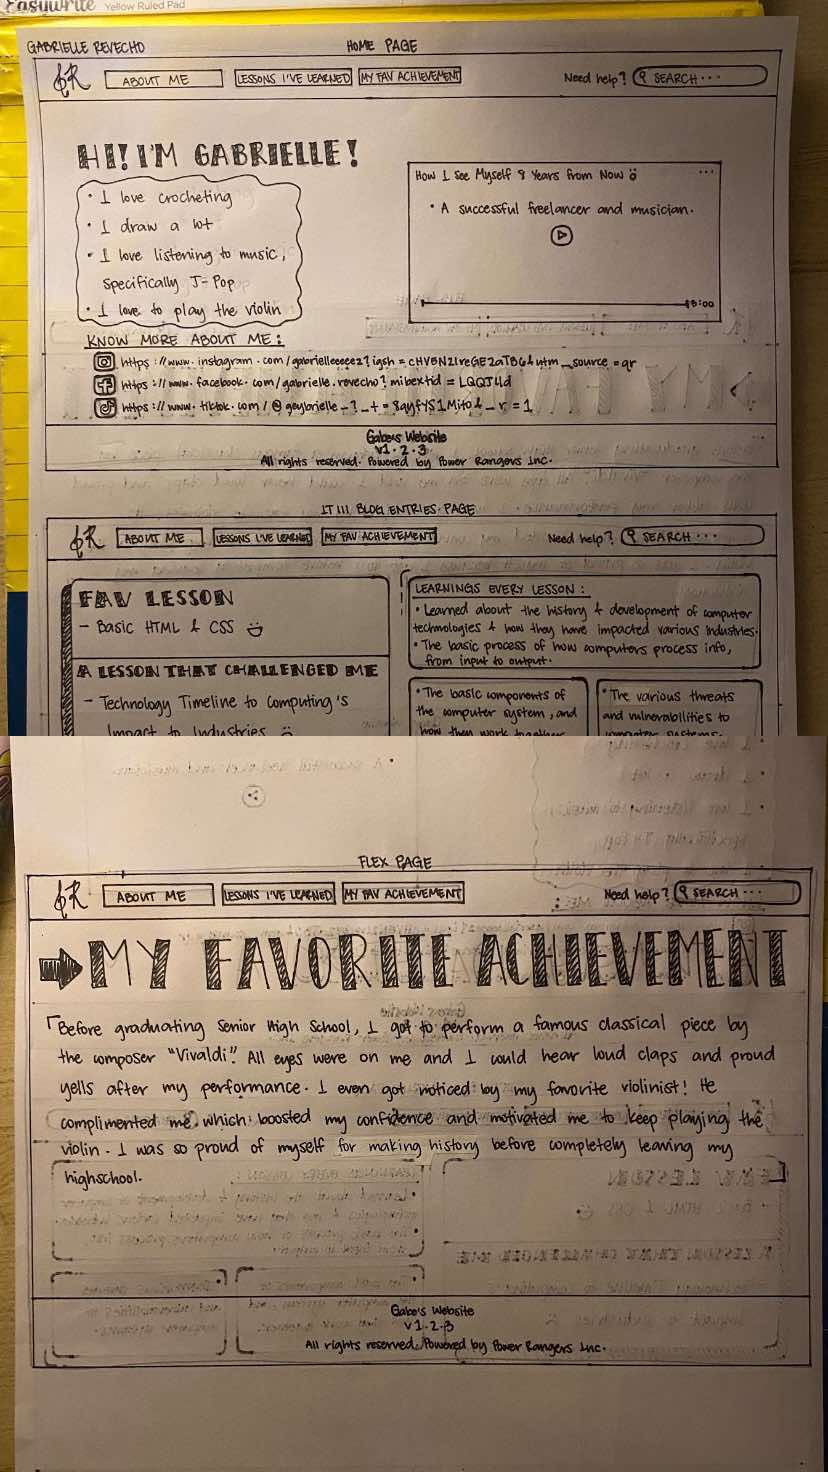 Easywrite Yellow Ruled Pad
GABRIELLE REVECHO
HOME PAGE
ABOUT ME
LESSONS I'VE LEARNED
MY FAV ACHIEVEMENT
Need help?
SEARCH...
HI! I'M GABRIELLE!
• I love crocheting
• I draw a lot
• I love listening to music,
specifically J-Pop
• I love to play the violin
How I See Myself 8 Years from Now
...
• A successful freelancer and musician.
8:00
KNOW MORE ABOUT ME:
https://www.instagram.com/gabrielleeeeez?igsh=cHV6N2lreGE2aTBG&utm_source=qr
https://www.facebook.com/gabrielle.revecho?mibextid=LQQJ4d
https://www.tiktok.com/@geybrielle_?_t=8qyfYS1Mito&_r=1
Gabe's Website
v1.2.3
All rights reserved. Powered by Power Rangers Inc.
IT 111 BLOG ENTRIES PAGE
ABOUT ME
LESSONS I'VE LEARNED
MY FAV ACHIEVEMENT
Need help?
SEARCH...
FAV LESSON
- Basic HTML & CSS
A LESSON THAT CHALLENGED ME
- Technology Timeline to Computing's
Impact to Industries
LEARNINGS EVERY LESSON:
• Learned about the history & development of computer
technologies & how they have impacted various industries.
• The basic process of how computers process info,
from input to output.
• The basic components of
the computer system, and
how they work together
• The various threats
and vulnerabilities to
computer systems.
FLEX PAGE
ABOUT ME
LESSONS I'VE LEARNED
MY FAV ACHIEVEMENT
Need help?
SEARCH...
MY FAVORITE ACHIEVEMENT
Before graduating Senior High School, I got to perform a famous classical piece by
the composer "Vivaldi". All eyes were on me and I could hear loud claps and proud
yells after my performance. I even got noticed by my favorite violinist! He
complimented me which boosted my confidence and motivated me to keep playing the
violin. I was so proud of myself for making history before completely leaving my
highschool.
Gabe's Website
v1.2.3
All rights reserved. Powered by Power Rangers Inc.